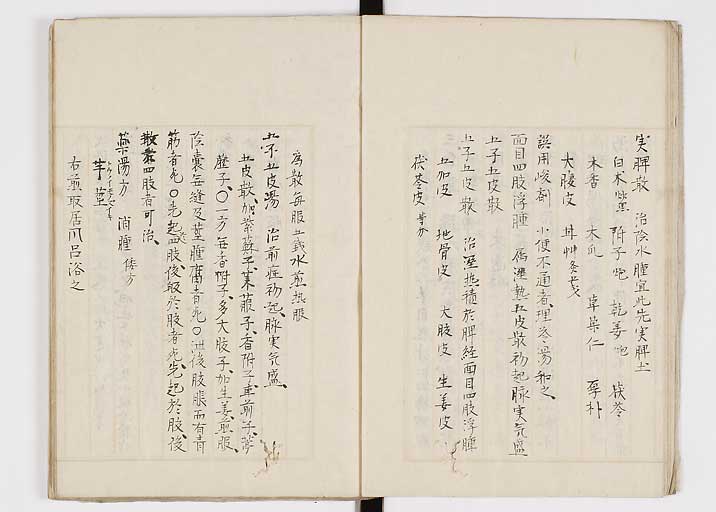 実脾散 治陰水腫宜此先実脾土
白朮 附子炮 乾姜炮 茯苓
木香 木瓜 草菓仁 厚朴
大腹皮 甘草
誤用峻剤 小便不通者理苓湯和之
面目四肢浮腫 属湿熱五皮散初起脉実気盛
五子五皮散
五皮散 治湿熱積於脾経面目四肢浮腫
五加皮 地骨皮 大腹皮 生姜皮
茯苓皮 等分
為散毎服五銭水煎熱服
五子五皮湯 治前症初起脉実気盛
五皮散加紫蘇子莱菔子香附子車前子葶
藶子〇一方無香附子多大腹子加生姜煎服
陰嚢無縫及茎腫腐者死〇洲後肢脹而有青
筋者死〇先起四肢後服於腹者死先起於腹後
散四肢者可治
薬湯方 消腫 倭方
芋茎
右煎取居風呂浴之